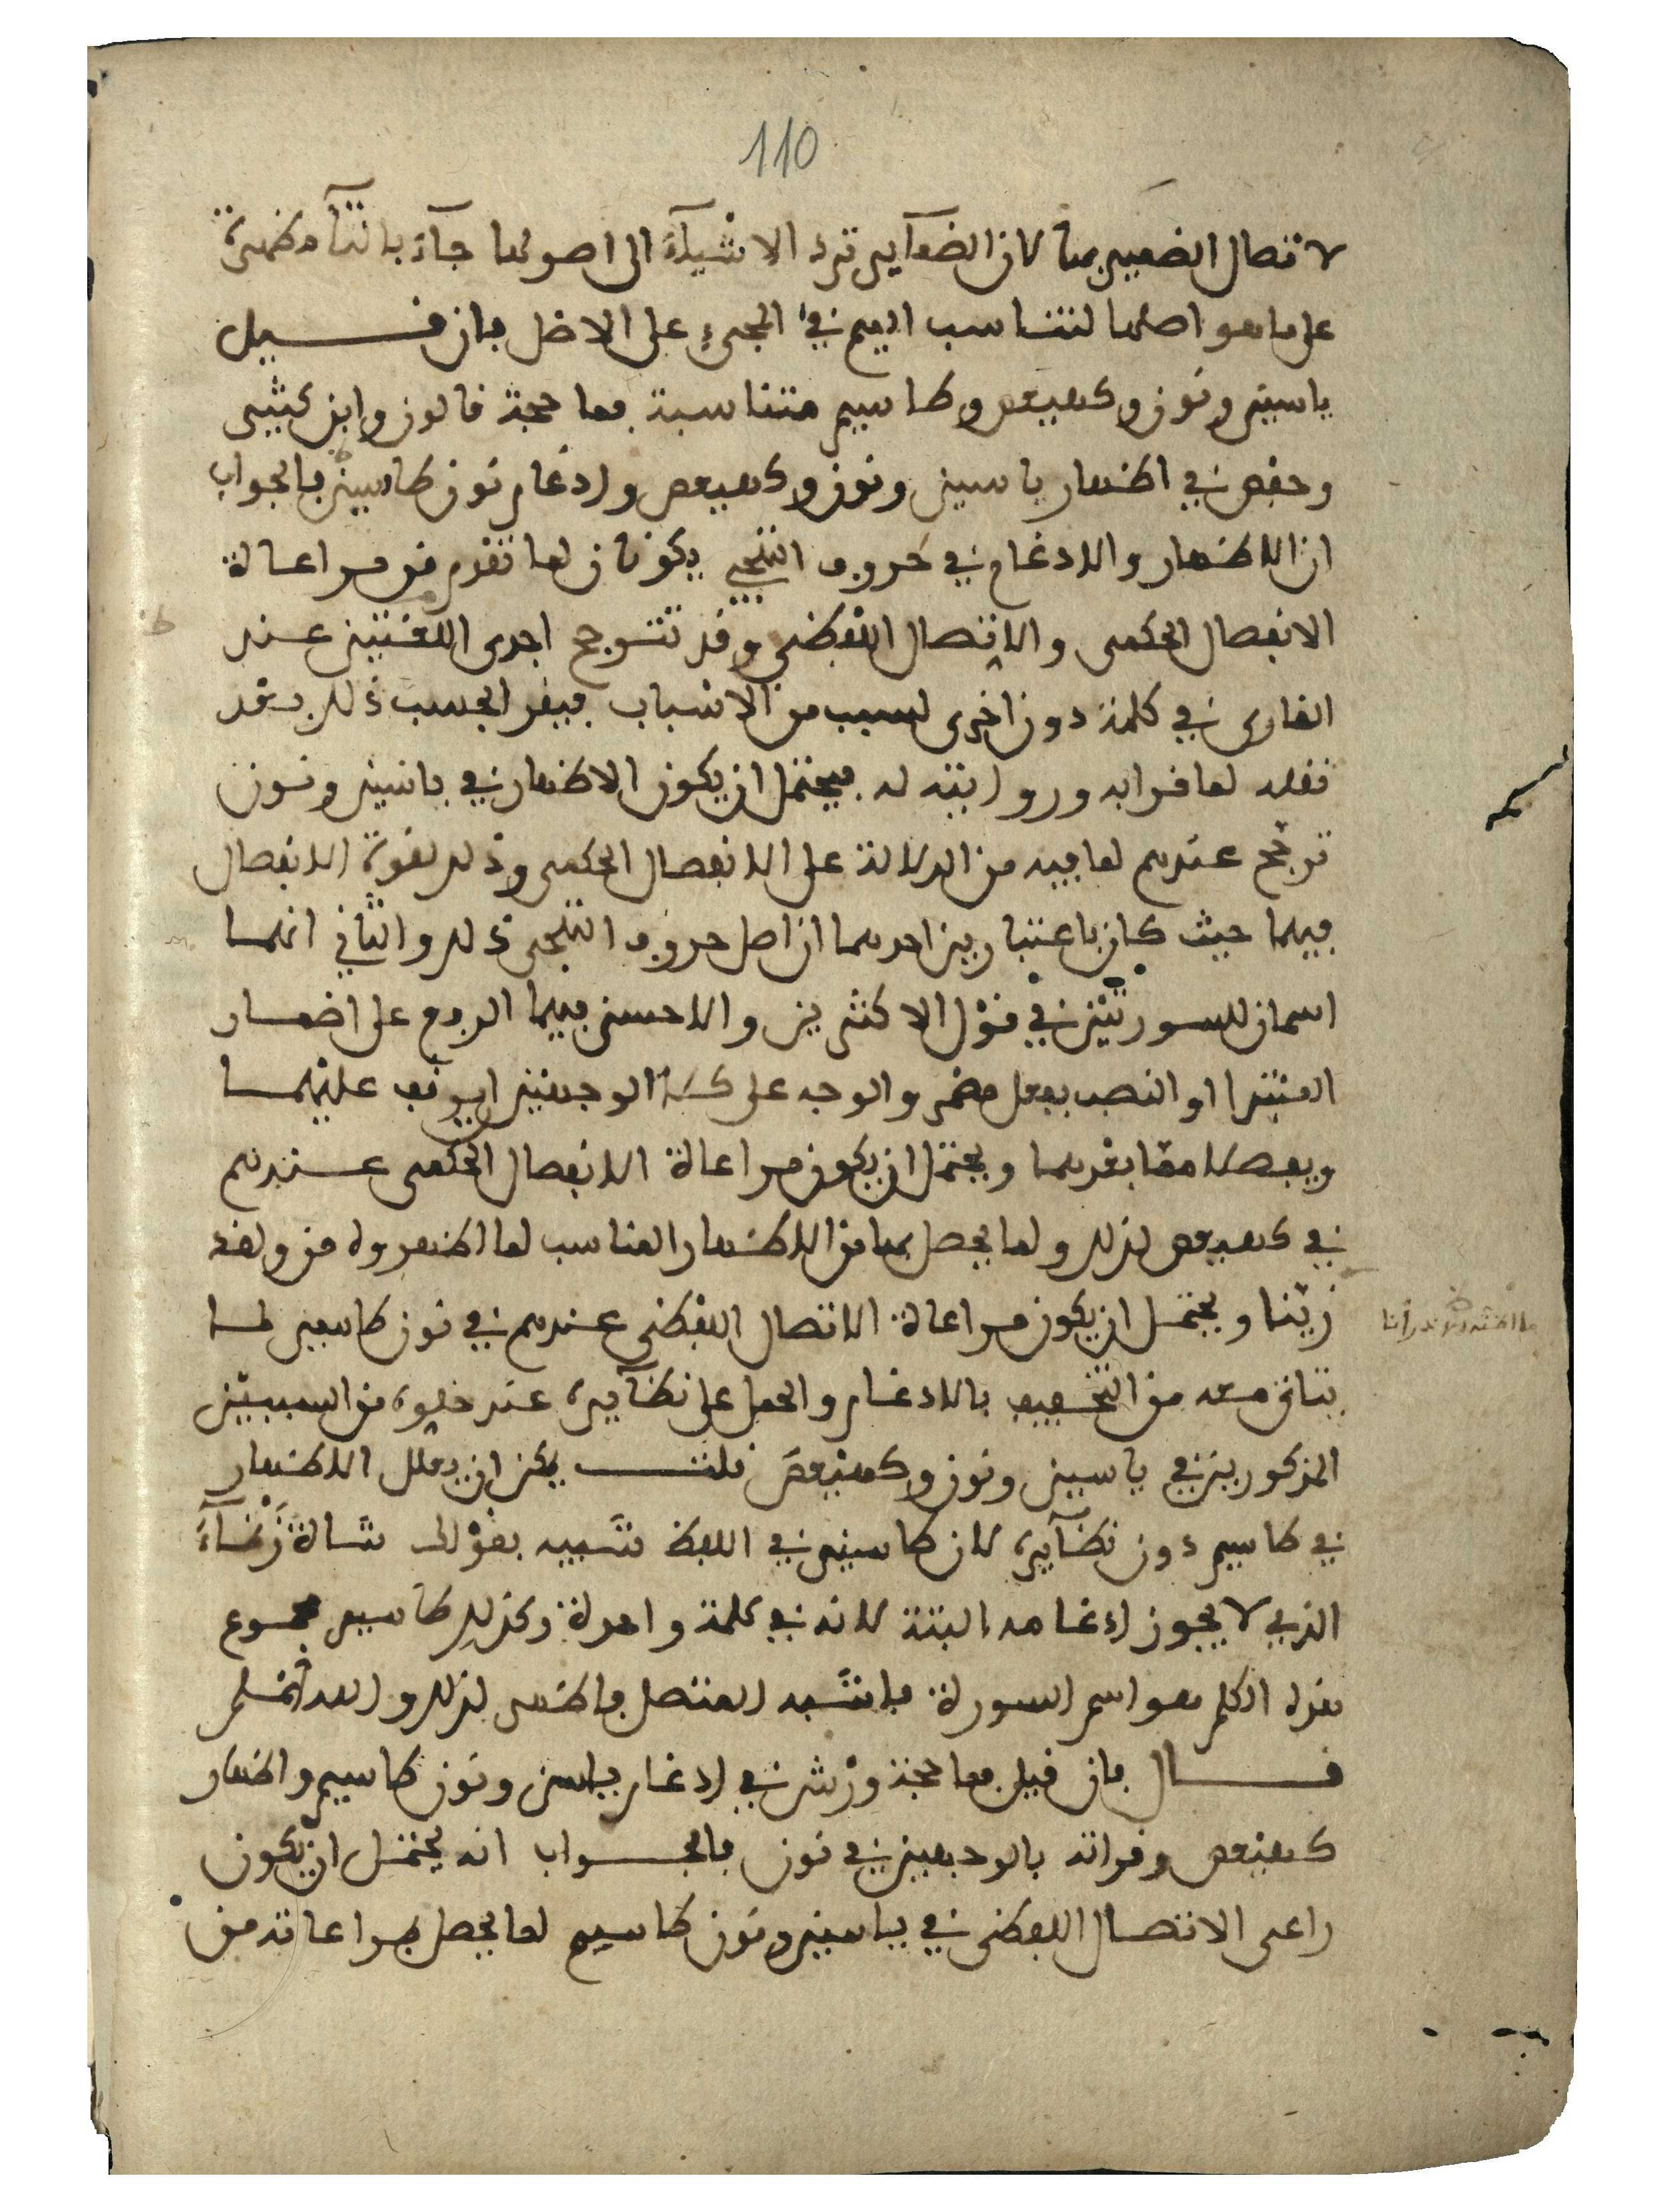 110
لاتصال الضمير بها لان الضمآير ترد الاشيآء الى اصولها جآء بالتآ مظهرة
على ما هو اصلها لتناسب الميم في المجيء على الاصل فان قيل
ياسين ونون وكهيعص وطاسيم متناسبة فما حجة قالون وابن كثير
وحفص في اظهار ياسين ونون وكهيعص وادغام نون طاسين فالجواب
ان الاظهار والادغام في حروف التهجي يكونان لما تقدم من مراعاة
الانفصال الحكمي والاتصال اللفظي وقد تترجح احدى اللغتين عند
القارى في كلمة دون اخرى لسبب من الاسباب فيقرا بحسب ذلك بعد
نقله لما قرا به وروايته له فيحتمل ان يكون الاظهار في ياسين ونون
ترجح عندهم لما فيه من الدلالة على الانفصال الحكمي وذلك لقوة الانفصال
فيهما حيث كان باعتبارين احدهما ان اصل حروف التهجي ذلك والثاني انهما
اسمان للسورتين في قول الاكثرين والاحسن فيهما الرفع على اضمار
المبتدا او النصب بفعل مضمر والوجه على الوجهين ان يوقف عليهما
ويفصلا مما بعدهما ويحتمل ان يكون مراعاة الانفصال الحكمي عندهم
في كهيعص لذلك ولما يحصل بها من الاظهار المناسب لما اظهروه من ولقد
زينا ويحتمل ان يكون مراعاة الاتصال اللفظي عندهم في نون طاسين لما
يتاتى معه من التخفيف بالادغام والحمل على نظآيره عند خلوه من السببين
المذكورين في ياسين ونون وكهيعص قلت يمكن ان يعلل الاظهار
في طاسيم دون نظآيره لان طاسين في اللفظ شبيه بقولك شاة زنمآء
الذي لا يجوز ادغامه البتة لانه في كلمة واحدة وكذلك طاسيم مجموع
هذه الكلم هو اسم السورة فاشبه المتصل فاظهر لذلك والله اعلم
قال فان قيل فما حجة ورش في ادغام ياسن ونون طاسيم واظهار
كهيعص وقراته بالوجهين في نون فالجواب انه يحتمل ان يكون
راعى الاتصال اللفظي في ياسين ونون طاسيم لما يحصل بمراعاته من